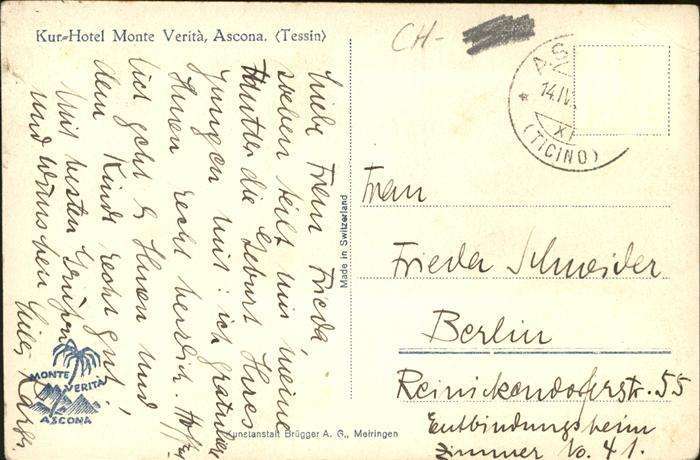 Kur-Hotel Monte Verità, Ascona. (Tessin)
CH-
ASC
14.IV.
XI
(TICINO)
Liebe Frau Frieda,
soeben teilt mir meine
Mutter die Geburt Ihres
Jungen mit: ich gratuliere
Ihnen recht herzlich. Hoffent-
lich geht es Ihnen und
dem Kinde recht gut!
Mit besten Grüßen
und Wünschen
Made in Switzerland
Frau
Frieda Schneider
Berlin
Reinickendorferstr. 55
Entbindungsheim
Zimmer No. 41.
MONTE
VERITÀ
ASCONA
Kunstanstalt Brügger A. G., Meiringen